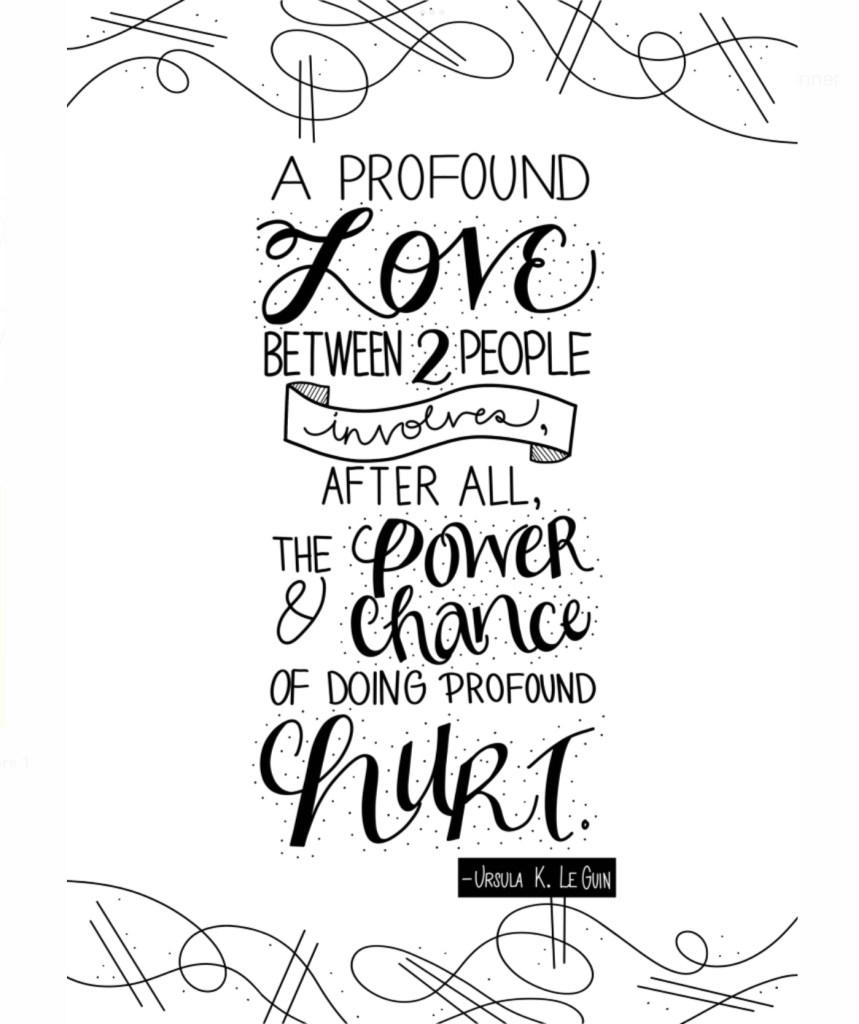 A PROFOUND
LOVE
BETWEEN 2 PEOPLE
involves,
AFTER ALL,
THE POWER
& chance
OF DOING PROFOUND
HURT.
-URSULA K. LE GUIN